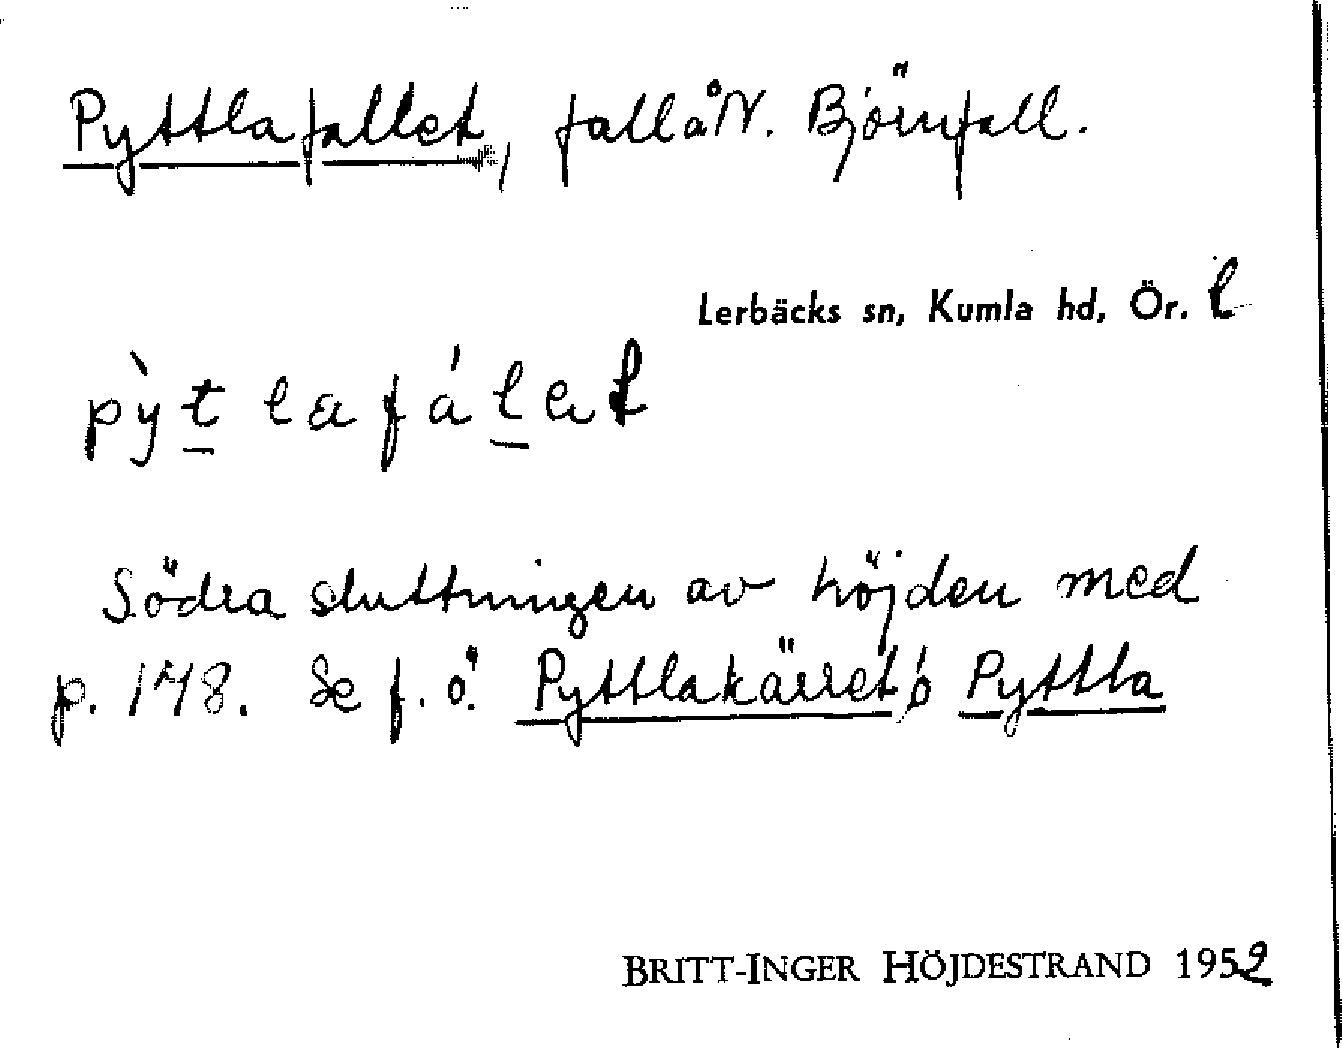 Pyttlafallet, fall å N. Björnfall.
Lerbäcks sn, Kumla hd, Ör. l
pỳt lafálət
Södra sluttningen av höjden med
p. 148. Se f. ö. Pyttlakärret, o Pyttla
BRITT-INGER HÖJDESTRAND 1952